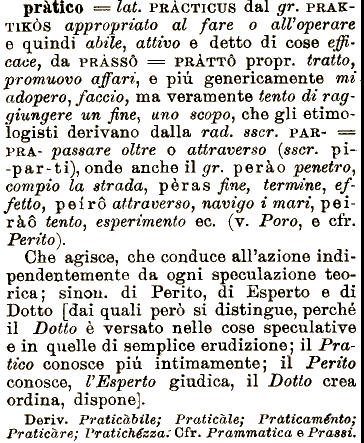 pràtico = lat. PRÀCTICUS dal gr. PRAK-
TIKÒS appropriato al fare o all'operare
e quindi abile, attivo e detto di cose effi-
cace, da PRÀSSÔ = PRÀTTÔ propr. tratto,
promuovo affari, e più genericamente mi
adopero, faccio, ma veramente tento di rag-
giungere un fine, uno scopo, che gli etimo-
logisti derivano dalla rad. sscr. PAR- =
PRA- passare oltre o attraverso (sscr. pi-
-par-ti), onde anche il gr. peràô penetro,
compio la strada, pèras fine, termine, ef-
fetto, peirô attraverso, navigo i mari, pei-
ràô tento, esperimento ec. (v. Poro, e cfr.
Perito).
Che agisce, che conduce all'azione indi-
pendentemente da ogni speculazione teo-
rica; sinon. di Perito, di Esperto e di
Dotto [dai quali però si distingue, perché
il Dotto è versato nelle cose speculative
e in quelle di semplice erudizione; il Pra-
tico conosce più intimamente; il Perito
conosce, l'Esperto giudica, il Dotto crea
ordina, dispone].
Deriv. Praticàbile; Praticàle; Pràticaménto;
Praticàre; Pratichézza. Cfr. Prammatica e Prassi.